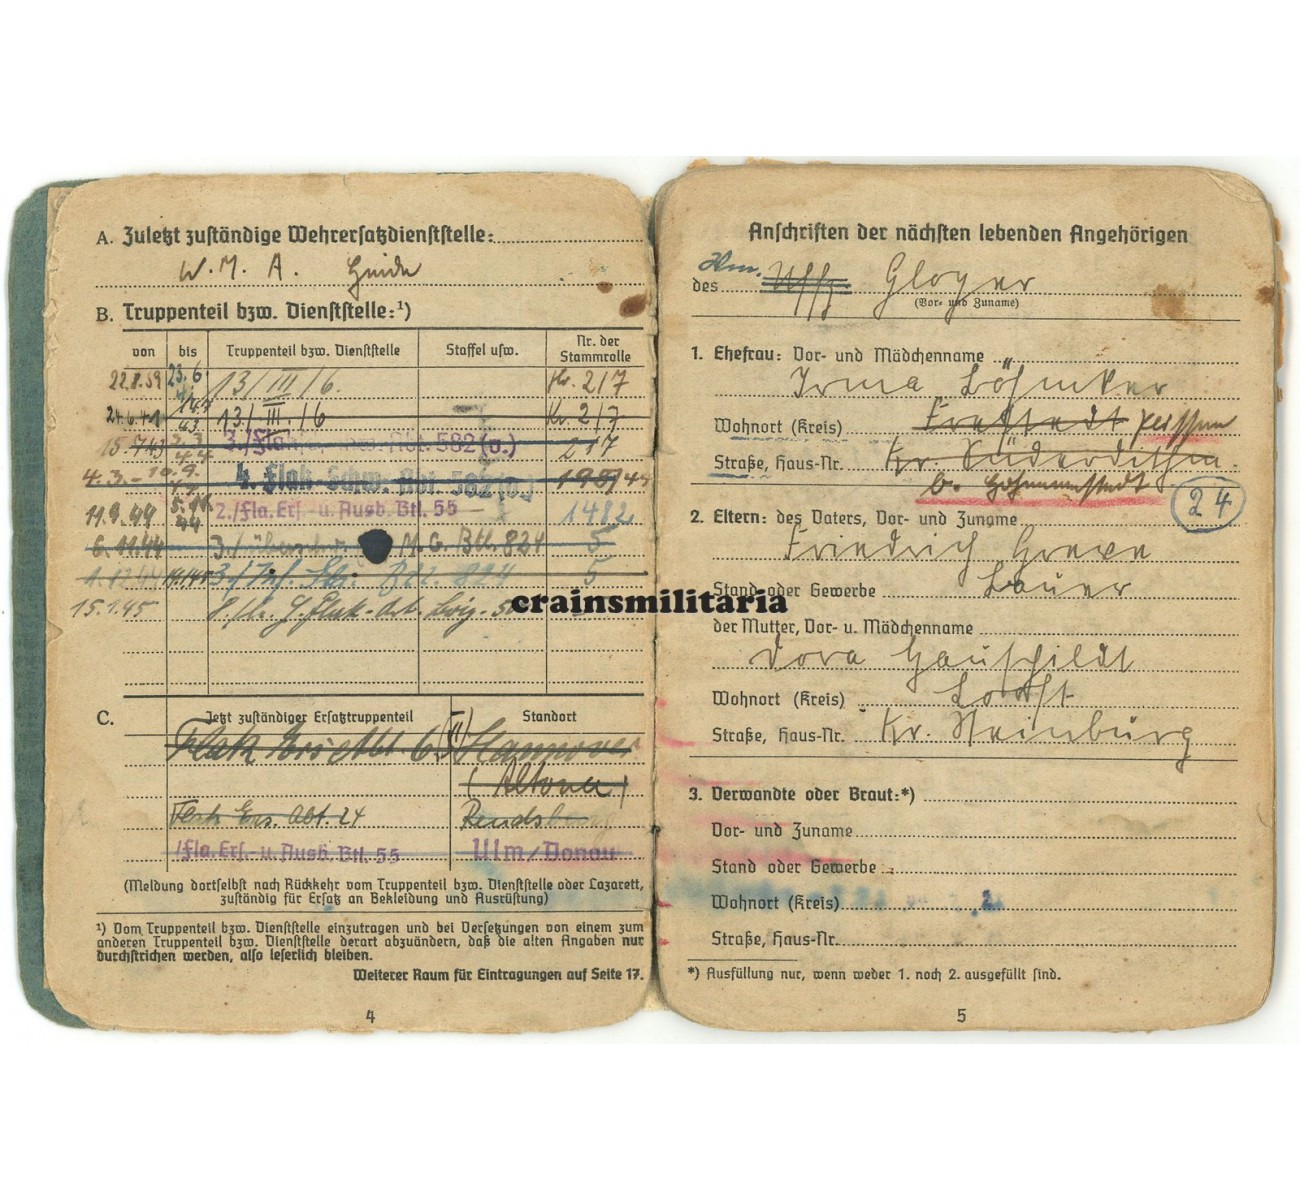 A. Zuletzt zuständige Wehrersatzdienststelle:
W. M. A. Heide
B. Truppenteil bzw. Dienststelle:¹)
von bis Truppenteil bzw. Dienststelle Staffel usw. Nr. der Stammrolle
22.8.39 23.6 13/III/6. Kr. 217
24.6.41 14.7 43 13/III/6 Kr. 217
15.7.43 3.3 44 3./Flak 582 (o.) 217
4.3.- 10.9. 44 4. Flak-Schw. Abt. 582 (o.)
11.9.44 5.11 44 2./Fla. Ers.- u. Ausb. Btl. 55 1482
6.11.44 3./ M. G. Btl. 824 5
14.1.45 3./ Btl. 824 5
15.1.45
C. Jetzt zuständiger Ersatztruppenteil Standort
Flak Ers. Abt. 6 Hannover
(Altona)
Flak Ers. Abt. 24 Rendsburg
/Fla. Ers.- u. Ausb. Btl. 55 Ulm/Donau
(Meldung dortselbst nach Rückkehr vom Truppenteil bzw. Dienststelle oder Lazarett,
zuständig für Ersatz an Bekleidung und Ausrüstung)
¹) Vom Truppenteil bzw. Dienststelle einzutragen und bei Versetzungen von einem zum
anderen Truppenteil bzw. Dienststelle derart abzuändern, daß die alten Angaben nur
durchstrichen werden, also leserlich bleiben.
Weiterer Raum für Eintragungen auf Seite 17.
4
Anschriften der nächsten lebenden Angehörigen
des Uffz Gloyer
(Vor- und Zuname)
1. Ehefrau: Vor- und Mädchenname
Irma Löhmker
Wohnort (Kreis) Frestedt Peissen
Straße, Haus-Nr. Kr. Süderdithm.
b. Hohenwestedt
24
2. Eltern: des Vaters, Vor- und Zuname
Friedrich Greve
Stand oder Gewerbe Bauer
der Mutter, Vor- u. Mädchenname
Dora Hauschildt
Wohnort (Kreis) Looft
Straße, Haus-Nr. Kr. Steinburg
3. Verwandte oder Braut:*)
Vor- und Zuname
Stand oder Gewerbe
Wohnort (Kreis)
Straße, Haus-Nr.
*) Ausfüllung nur, wenn weder 1. noch 2. ausgefüllt sind.
5
crainsmilitaria